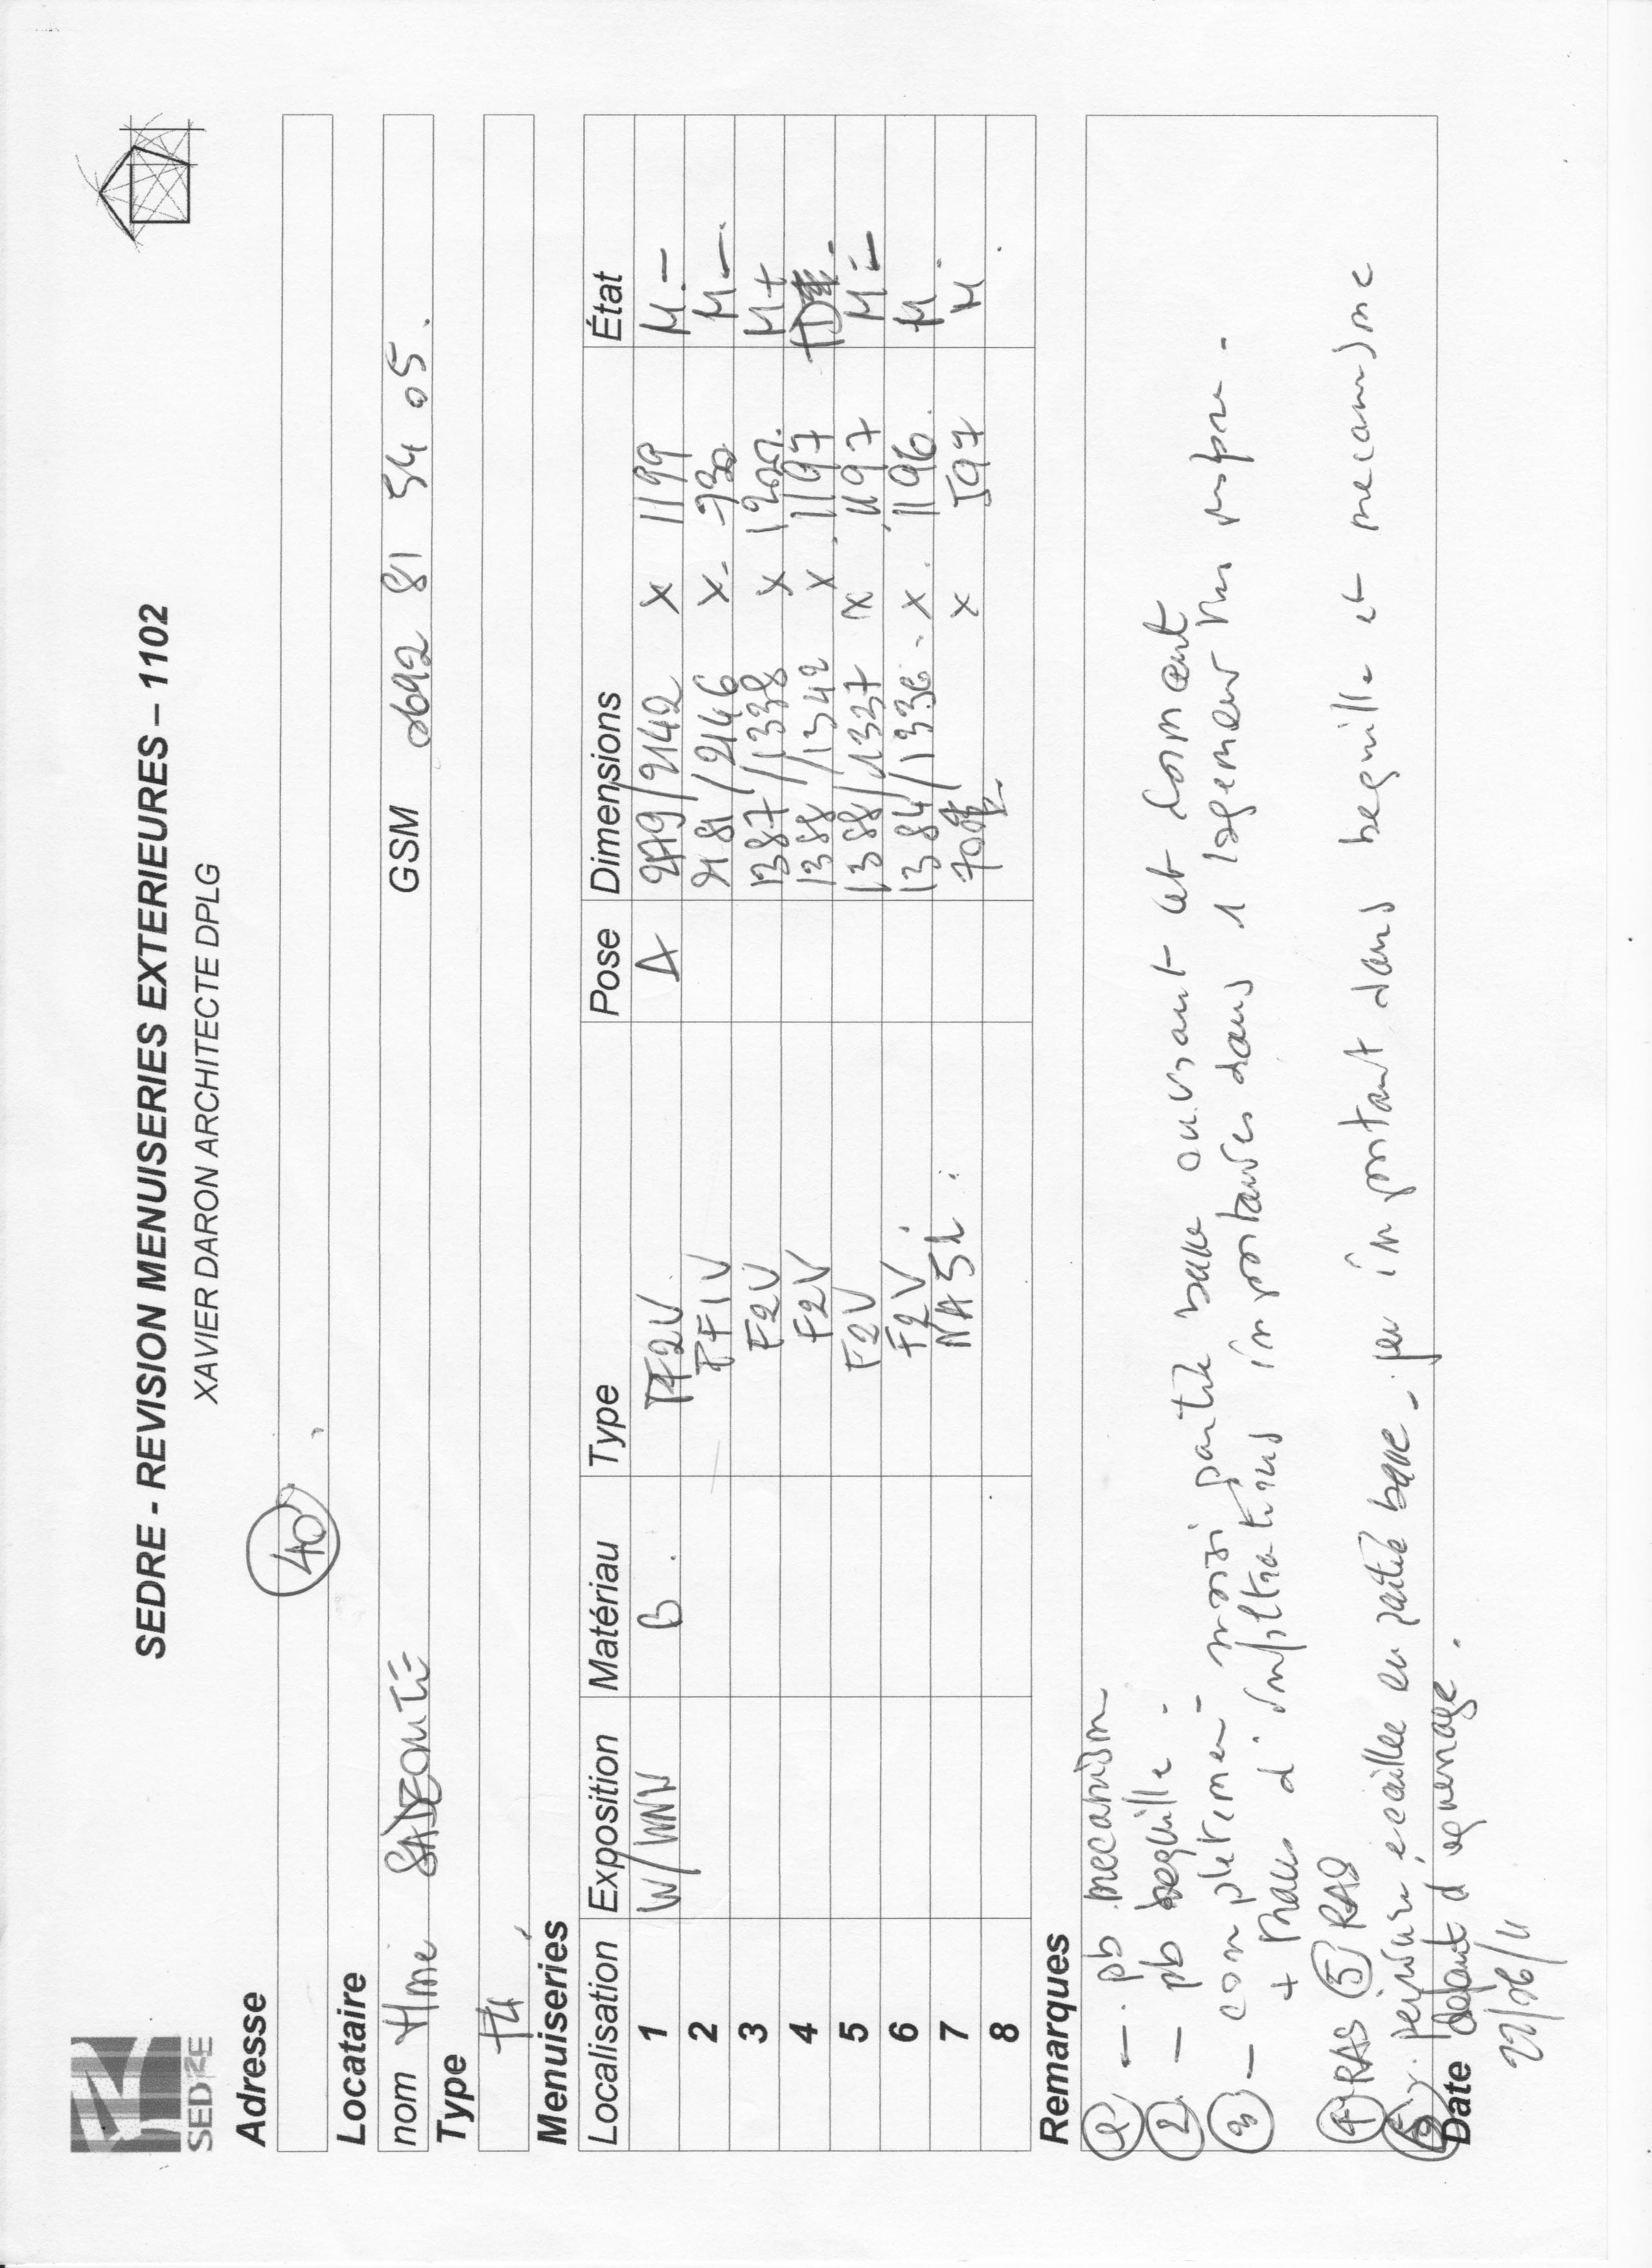 SEDRE
SEDRE - REVISION MENUISERIES EXTERIEURES – 1102
XAVIER DARON ARCHITECTE DPLG
Adresse
40
Locataire
nom Mme GSM 0692 81 54 05
Type
T4
Menuiseries
Localisation Exposition Matériau Type Pose Dimensions État
1 W/WNW B. PF2V A /2142 x 1199 M-
2 PF1V 2181/2146 x 730 M-
3 F2V 1387/1338 x M+
4 F2V 1388/1342 x 1197
5 F2V 1388/1337 x 1197 M-
6 F2V 1384/1336 x 1196 M
7 NA5L x 597 M
8
Remarques
1 - pb mecanism
2 - pb bequille -
3 - moisi partie basse ouvrant et dormant
+ traces d'infiltrations importantes dans 1 logement
4 RAS 5 RAS
6 peinture écaillée en partie basse - jeu important dans bequille et mecanisme
Date défaut d'equerrage.
22/06/11